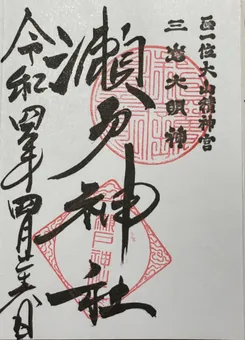 正一位大山積神宮
三島大明神
瀬戸神社
令和四年四月日